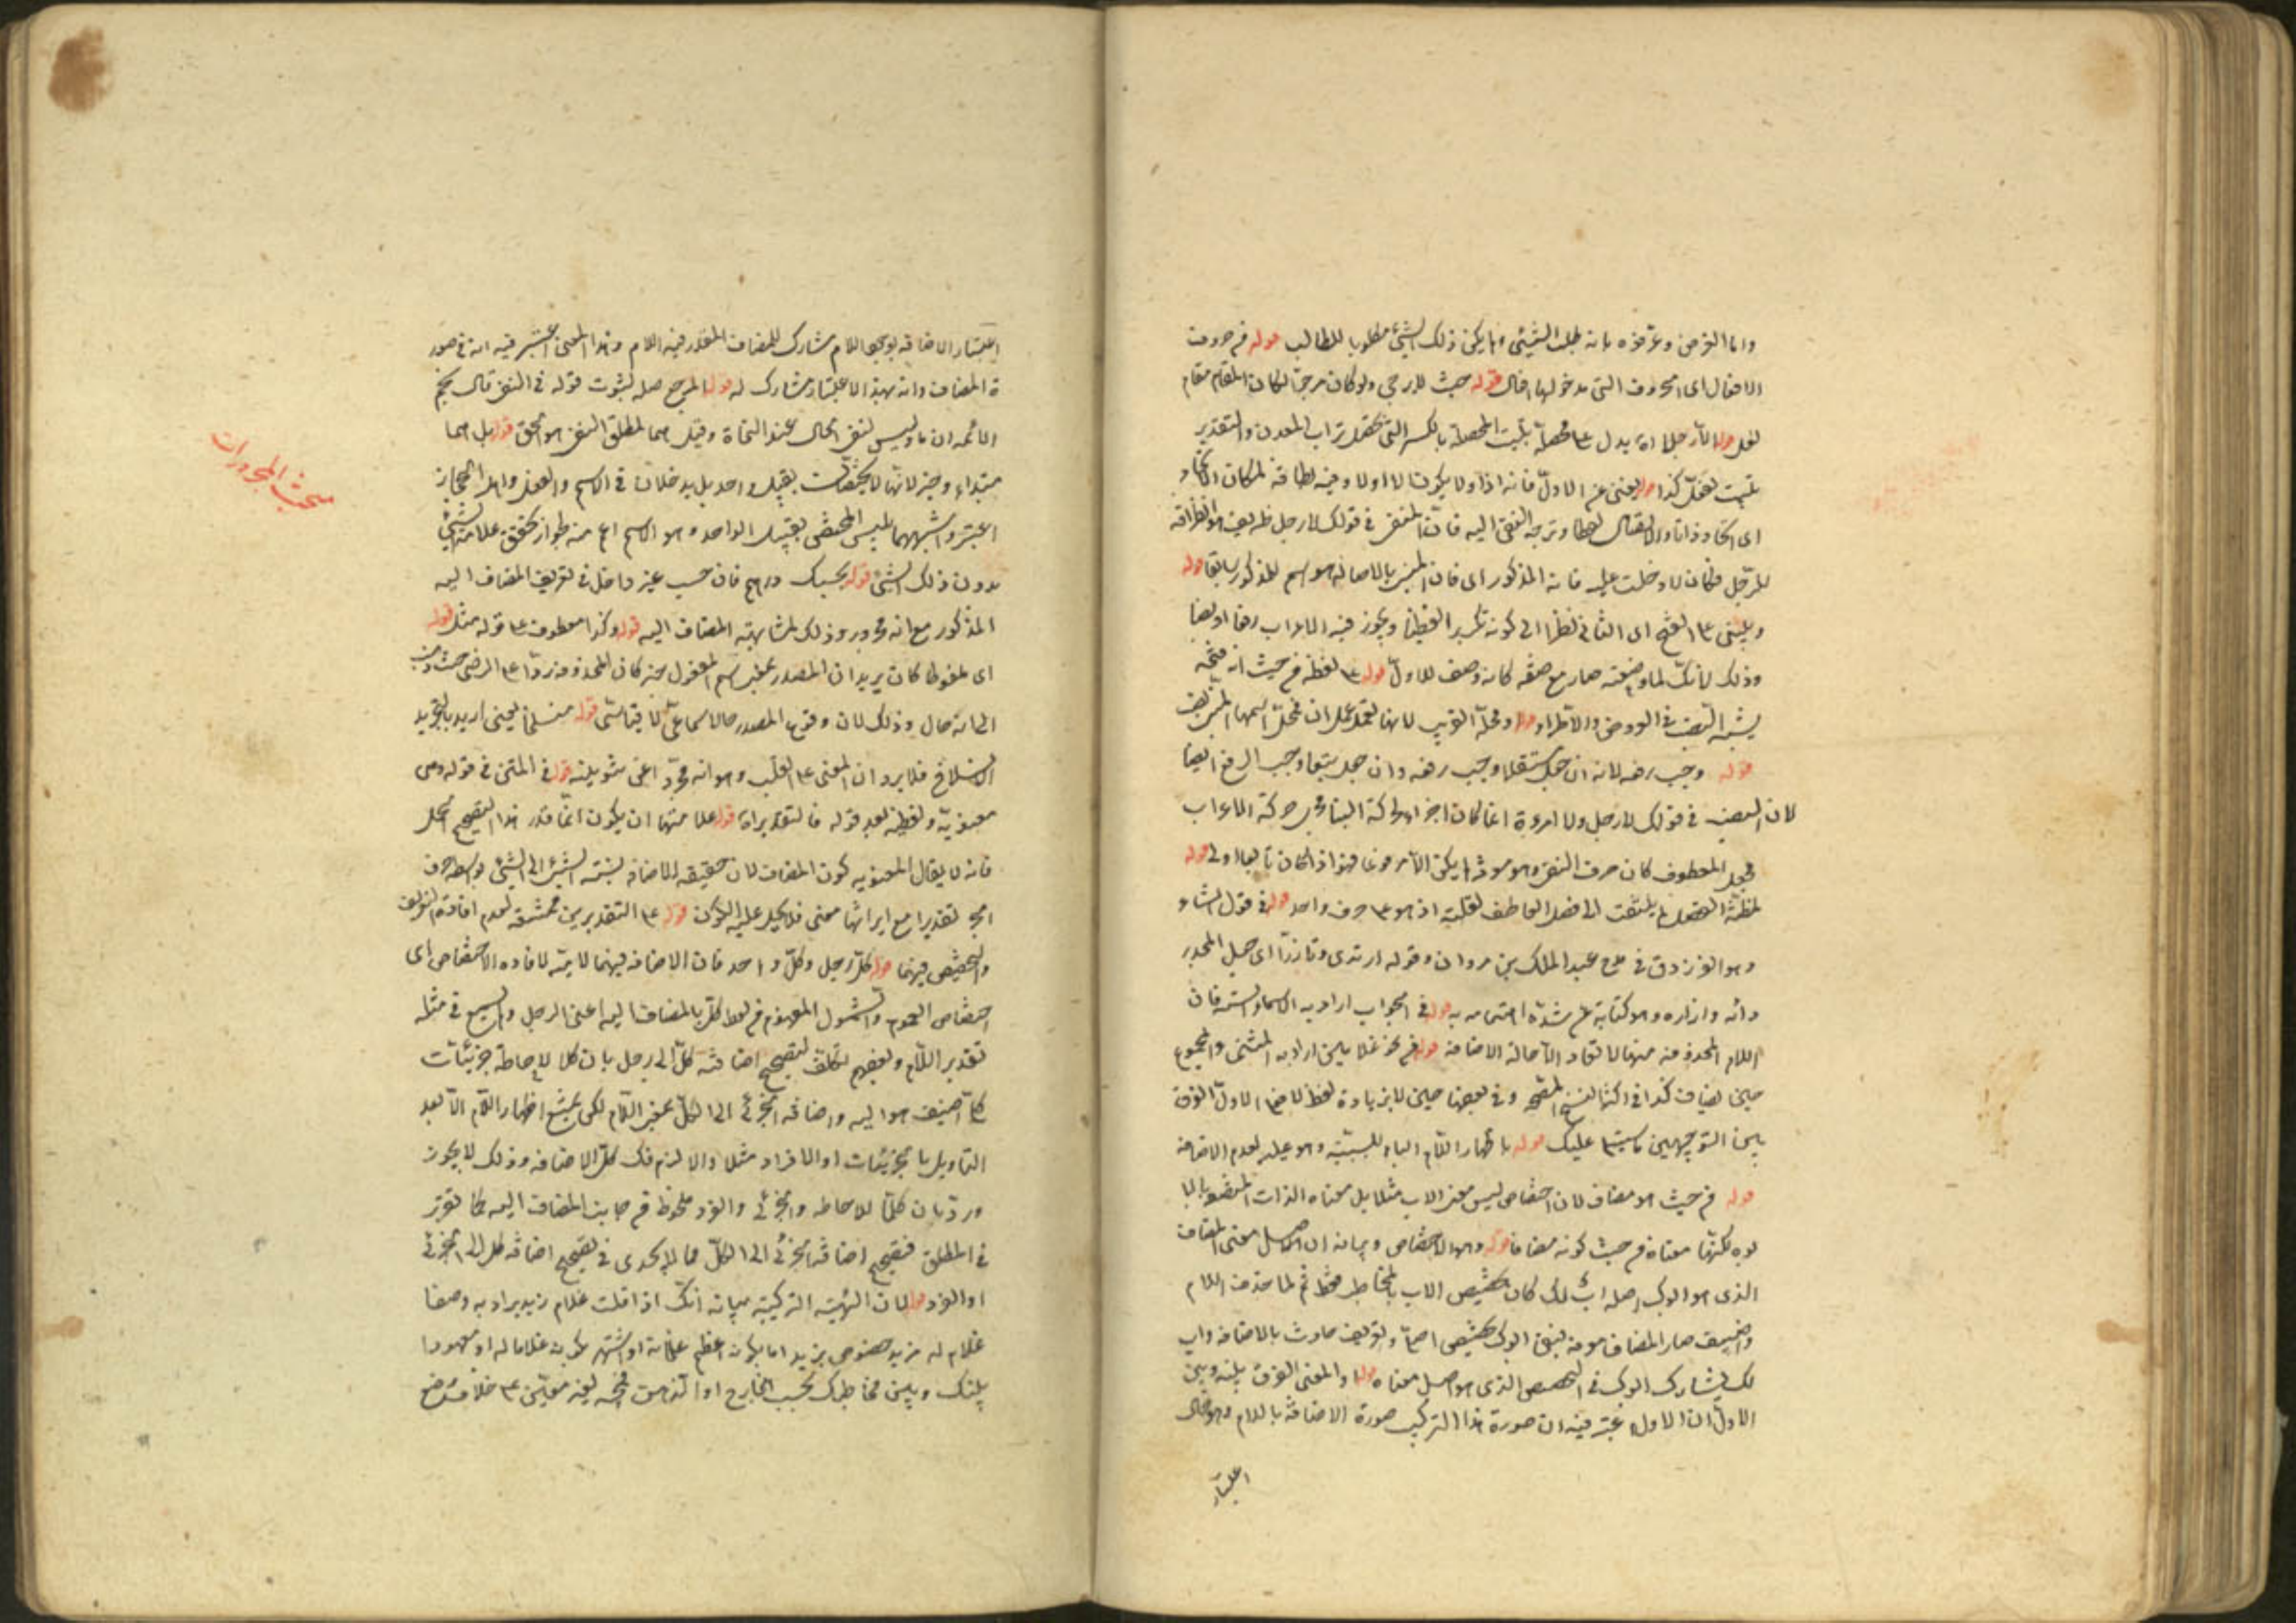 واما العرض وعرفوه بانه طلب الشيئ ولم يكن ذلك الشيئ مطلوبا للطالب قوله من حروف
الافعال اى الحروف التى مدخولها افعال قوله حيث لا يرجى ولو كان مرجوا لكان المقام مقام
لعل قوله الا رجلا اه يدل على محصلة تبيت المحصلة بالكسر التى تحصل تراب المعدن والتقدير
تبيت تفعل كذا قوله يعنى عن الاول فانه اذا ولا يكون لا اولا وفيه لطافة لمكان الاتحاد
اى اتحاد ذاتا والاتصال لفظا وتوجه النفى اليه فان المنفى فى قولك لا رجل ظريف هو الظرافة
للرجل فكان لا دخلت عليه فانه المذكور اى فان المبنى بالاصالة هو اسم لا المذكور سابقا قوله
ويبنى على الفتح اى الثانى نظرا الى كونه تكرير لفظيا ويجوز فيه الاعراب رفعا ونصبا
وذلك لانك لما وصفته صار مع صفته كانه وصف للاول قوله على لفظه من حيث انه فتحه
يشبه النصب فى العروض والاطراد قوله ومحله القريب لانها تعمل عمل ان فمحل اسمها القريب
قوله وجب رفعه لانه ان جعل مستقلا وجب رفعه وان جعل تبعا وجب الرفع ايضا
لان النصب فى قولك لا رجل ولا امرءة انما كان اجراء لحركة البناء مجرى حركة الاعراب
فجعل المعطوف كان حرف النفى وهو موثر لم يكن الا مرفوعا فهو اذا كان تابعا اولى قوله
لمظنة الفصل لم يلتفت الى فصل العاطف لقلته اذ هو على حرف واحد قوله فى قول الشاعر
وهو الفرزدق فى مدح عبد الملك بن مروان وقوله ارتدى وتازرا اى جعل المجد
ردائه وازاره وهو كناية عن شدة اهتمامه به قوله فى الجواب اراد به الاسماء الستة فان
اللام المحذوفة منها لا تعاد الا حالة الاضافة قوله من نحو غلامين اراد به المثنى والمجموع
حين يضاف كذا فى اكثر النسخ المصححة وفى بعضها حين لا بزيادة لفظ لا فعلى الاول الفرق
بين التوجيهين ما سيتلى عليك قوله باظهار اللام الباء للسببية وهو علة لعدم الاضافة
قوله من حيث هو مضاف لان اختصاص ليس معنى الاب مثلا بل معناه الذات المتصفة بالا
بوة لكنها معناه من حيث كونه مضافا قوله وهو الاختصاص وبيانه ان الاصل معنى المضاف
الذى هو ابوك اصله اب لك كان تخصيص الاب بالمخاطب فقط ثم لما حذفت اللام
واضيف صار المضاف معرفة ففى ابوك تخصيص اصلى وتعريف حادث بالاضافة واب
لك يشارك ابوك فى التخصيص الذى هو اصل معناه قوله والمعنى الفرق بينه وبين
الاول ان الاول اعتبر فيه ان صورة هذا التركيب صورة الاضافة باللام وهو خال
اعتبار
اعتبار الاضافة لوجود اللام مشارك للمضاف المقدر فيه اللام وهذا المعنى اعتبر فيه انه فى صور
ة المضاف وانه بهذا الاعتبار مشارك له قوله المرجح صلة لثبوت قوله فى النفى قال نجم
الائمة ان ما وليس لنفى الحال عند النحاة وقيل هما لمطلق النفى هو الحق قوله بل هما
مبتداء وخبر لانهما لا يختصان بقبيل واحد بل يدخلان فى الاسم والفعل واهل الحجاز
اعتبروا شبههما بليس المختص بقبيل الواحد وهو الاسم اعم منه لجواز تحقق علامة الشيئ
بدون ذلك الشيئ قوله بحسبك درهم فان حسب غير داخل فى تعريف المضاف اليه
المذكور مع انه مجرور وذلك لمشابهته المضاف اليه قوله وكذا معطوف على قوله مثل قوله
اى ملفوظا كان يريد ان المصدر بمعنى اسم المفعول خبر كان المحذوفة ردا على الرضى حيث ذهب
الى انه حال وذلك لان وقوع المصدر حالا سماعى لا قياسى قوله منسلخا يعنى اريد بالتجريد
الانسلاخ فلا يرد ان المعنى على القلب وهو انه مجرد اعنى تنوينه قوله فى المتن فى قوله وهى
معنوية ولفظية بعد قوله فالتقدير اه قوله علامتها ان يكون انما قدر هذا لتصحيح الحمل
فانه لا يقال المعنوية كون المضاف لان حقيقة الاضافة نسبة الشيئ الى الشيئ بواسطة حرف
الجر تقديرا مع ايراثها معنى فلا يحمل عليه الكون قوله على التقديرين ممتنعة لعدم افادة التعريف
والتخصيص فيهما قوله كل رجل وكل واحد فان الاضافة فيهما لامية لافادة الاختصاص اى
اختصاص العموم والشمول المفهوم من لفظ كل بالمضاف اليه اعنى الرجل والجميع فى مثله
تقدير اللام وبعضهم تكلف لتصحيح اضافة كل الى رجل بان كلا لاحاطة جزئيات
ما اضيف هو اليه واضافة الجزئى الى الكل بمعنى اللام لكن يمتنع اظهار اللام الا بعد
التاويل بالجزئيات او الافراد مثلا والا لزم فك كل الاضافة وذلك لا يجوز
ورد بان كلا للاحاطة والجزئى والفرد ملحوظ من جانب المضاف اليه كما تقرر
فى المطلق فتصحيح اضافة الجزئى الى الكل مما لا يجدى فى تصحيح اضافة كل الى الجزئى
او الفرد قوله لان الهيئة التركيبية بيانه انك اذا قلت غلام زيد يراد به وصفا
غلام له مزيد خصوص بزيد اما بكونه اعظم غلمانه او اشتهر بكونه غلاما له او معهودا
بينك وبين مخاطبك بحسب الخارج او الذهن فح يفيد معنى على خلاف وضع
مبحث المجرورات